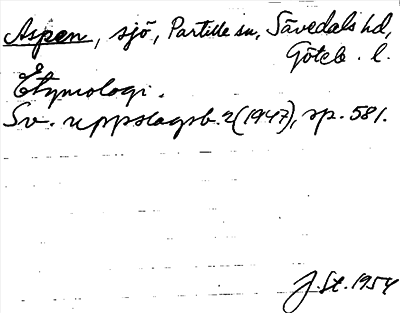 Aspen, sjö, Partille sn, Sävedals hd,
Göteb. l.
Etymologi.
Sv. uppslagsb. 2 (1947), sp. 581.
J. St. 1954